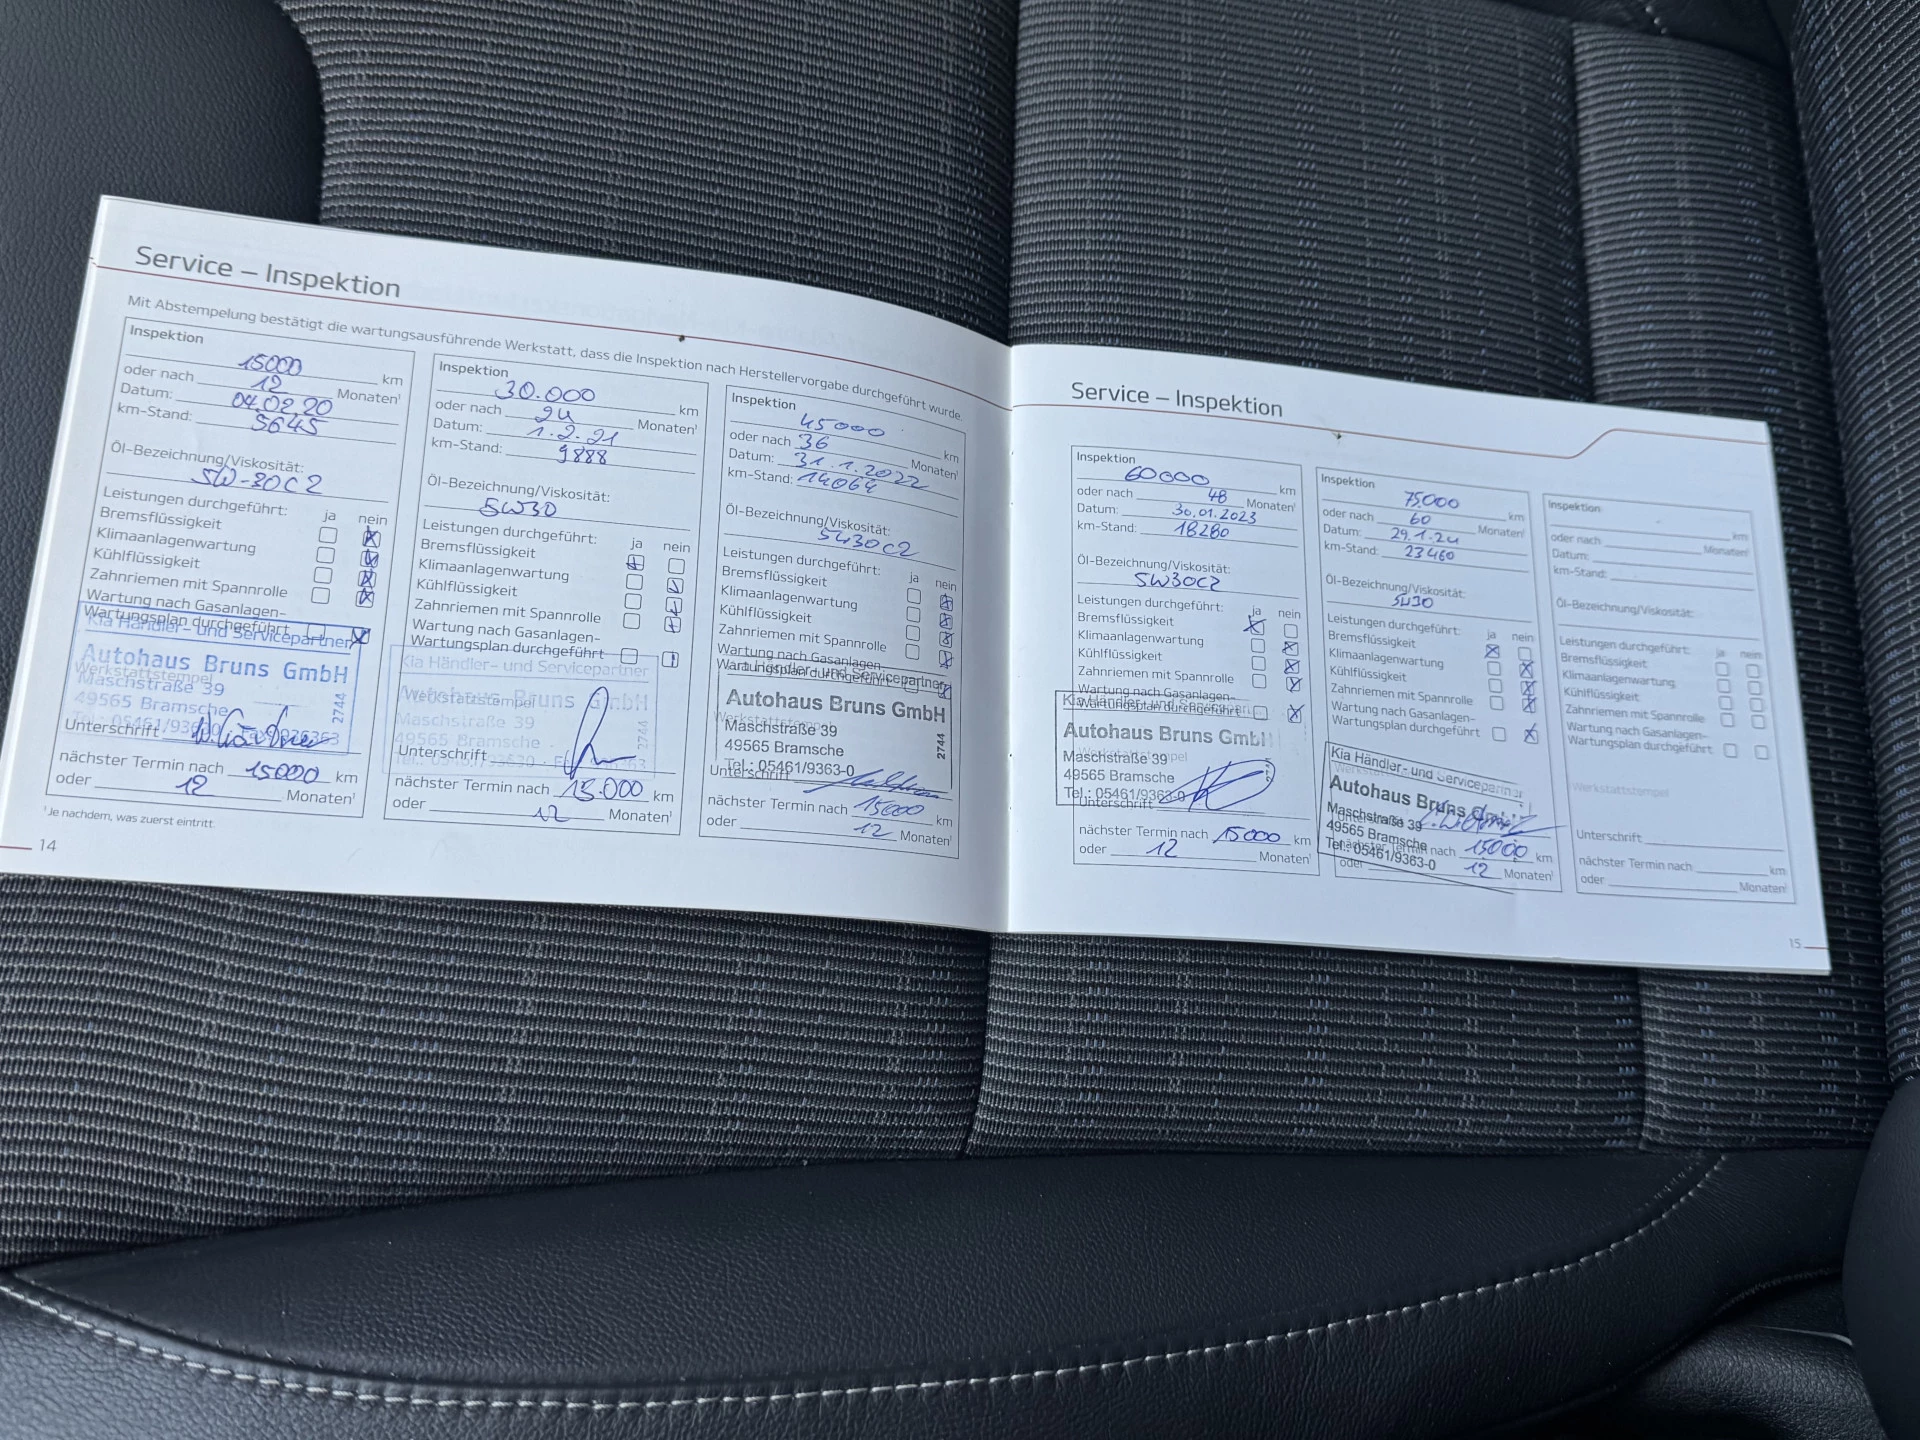 Service – Inspektion
Mit Abstempelung bestätigt die wartungsausführende Werkstatt, dass die Inspektion nach Herstellervorgabe durchgeführt wurde.
Inspektion
15000 km
oder nach 12 Monaten¹
Datum: 04.02.20
km-Stand: 5645
Öl-Bezeichnung/Viskosität:
5W-30C2
Leistungen durchgeführt: ja nein
Bremsflüssigkeit
Klimaanlagenwartung
Kühlflüssigkeit
Zahnriemen mit Spannrolle
Wartung nach Gasanlagen-
Wartungsplan durchgeführt
Kia Händler- und Servicepartner
Autohaus Bruns GmbH
Werkstattstempel
Maschstraße 39
49565 Bramsche
2744
Unterschrift
nächster Termin nach 15000 km
oder 12 Monaten¹
Inspektion
30.000 km
oder nach 24 Monaten¹
Datum: 1.2.21
km-Stand: 9888
Öl-Bezeichnung/Viskosität:
5W30
Leistungen durchgeführt: ja nein
Bremsflüssigkeit
Klimaanlagenwartung
Kühlflüssigkeit
Zahnriemen mit Spannrolle
Wartung nach Gasanlagen-
Wartungsplan durchgeführt
Kia Händler- und Servicepartner
Autohaus Bruns GmbH
Werkstattstempel
Maschstraße 39
49565 Bramsche
2744
Unterschrift
nächster Termin nach 15.000 km
oder 12 Monaten¹
Inspektion
45000 km
oder nach 36 Monaten¹
Datum: 31.1.2022
km-Stand: 14064
Öl-Bezeichnung/Viskosität:
5W30C2
Leistungen durchgeführt: ja nein
Bremsflüssigkeit
Klimaanlagenwartung
Kühlflüssigkeit
Zahnriemen mit Spannrolle
Wartung nach Gasanlagen-
Wartungsplan durchgeführt
Kia Händler- und Servicepartner
Autohaus Bruns GmbH
Werkstattstempel
Maschstraße 39
49565 Bramsche
Tel.: 05461/9363-0
2744
Unterschrift
nächster Termin nach 15000 km
oder 12 Monaten¹
¹Je nachdem, was zuerst eintritt.
14
Service – Inspektion
Inspektion
60000 km
oder nach 48 Monaten¹
Datum: 30.01.2023
km-Stand: 18280
Öl-Bezeichnung/Viskosität:
5W30C2
Leistungen durchgeführt: ja nein
Bremsflüssigkeit
Klimaanlagenwartung
Kühlflüssigkeit
Zahnriemen mit Spannrolle
Wartung nach Gasanlagen-
Wartungsplan durchgeführt
Kia Händler- und Servicepartner
Autohaus Bruns GmbH
Werkstattstempel
Maschstraße 39
49565 Bramsche
Tel.: 05461/9363-0
Unterschrift
nächster Termin nach 15000 km
oder 12 Monaten¹
Inspektion
75.000 km
oder nach 60 Monaten¹
Datum: 29.1.24
km-Stand: 23460
Öl-Bezeichnung/Viskosität:
5W30
Leistungen durchgeführt: ja nein
Bremsflüssigkeit
Klimaanlagenwartung
Kühlflüssigkeit
Zahnriemen mit Spannrolle
Wartung nach Gasanlagen-
Wartungsplan durchgeführt
Kia Händler- und Servicepartner
Werkstattstempel
Autohaus Bruns GmbH
Maschstraße 39
Unterschrift
49565 Bramsche
Tel.: 05461/9363-0
nächster Termin nach 15000 km
oder 12 Monaten¹
Inspektion
km
oder nach Monaten¹
Datum:
km-Stand:
Öl-Bezeichnung/Viskosität:
Leistungen durchgeführt: ja nein
Bremsflüssigkeit
Klimaanlagenwartung
Kühlflüssigkeit
Zahnriemen mit Spannrolle
Wartung nach Gasanlagen-
Wartungsplan durchgeführt
Werkstattstempel
Unterschrift
nächster Termin nach km
oder Monaten¹
15